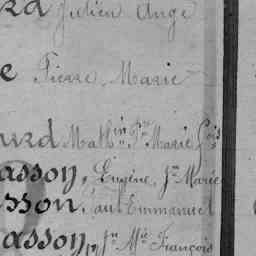 Julien Ange
Pierre Marie
Math.in P.re Marie F.ois
asson, Eugène, J.n Marie
sson Paul Emmanuel
asson, J.n M.ie François